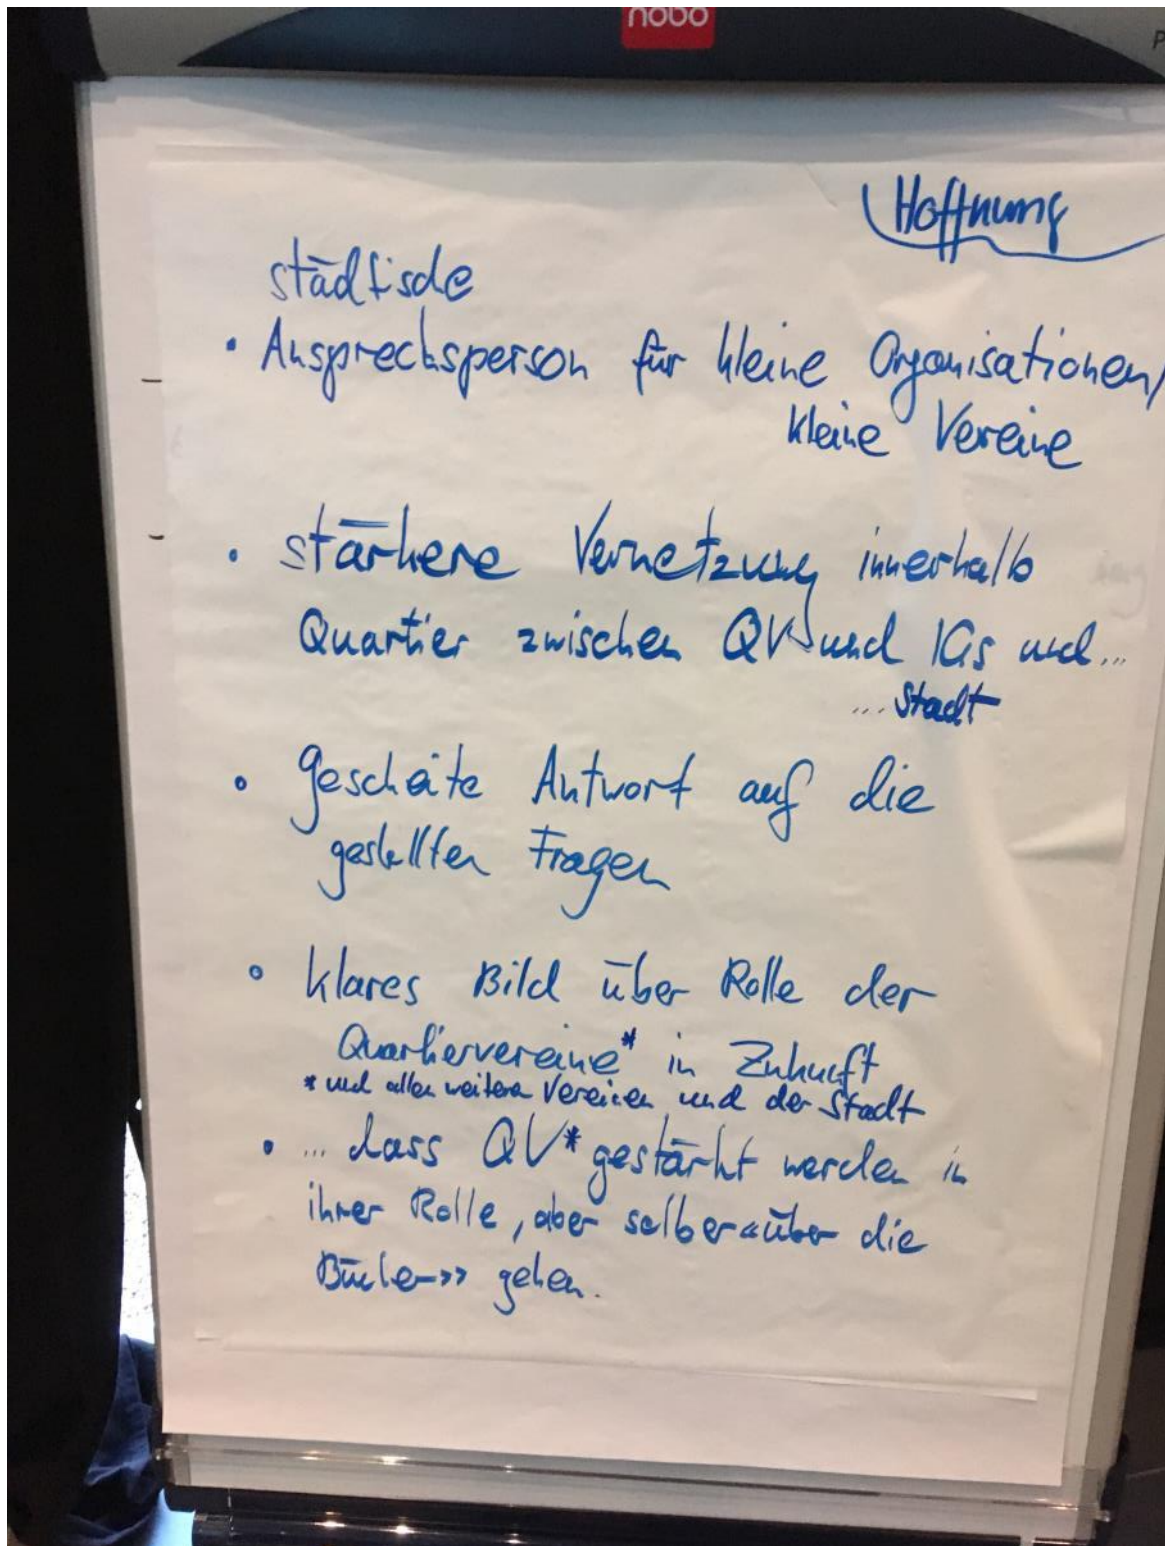 nobo
P
Hoffnung
städtische
• Ansprechsperson für kleine Organisationen/
kleine Vereine
• stärkere Vernetzung innerhalb
Quartier zwischen QV und IGs und...
... Stadt
• gescheite Antwort auf die
gestellten Fragen
• klares Bild über Rolle der
Quartiervereine* in Zukunft
* und allen weiteren Vereinen und der Stadt
• ... dass QV* gestärkt werden in
ihrer Rolle, aber selber «über die
Bücher» gehen.